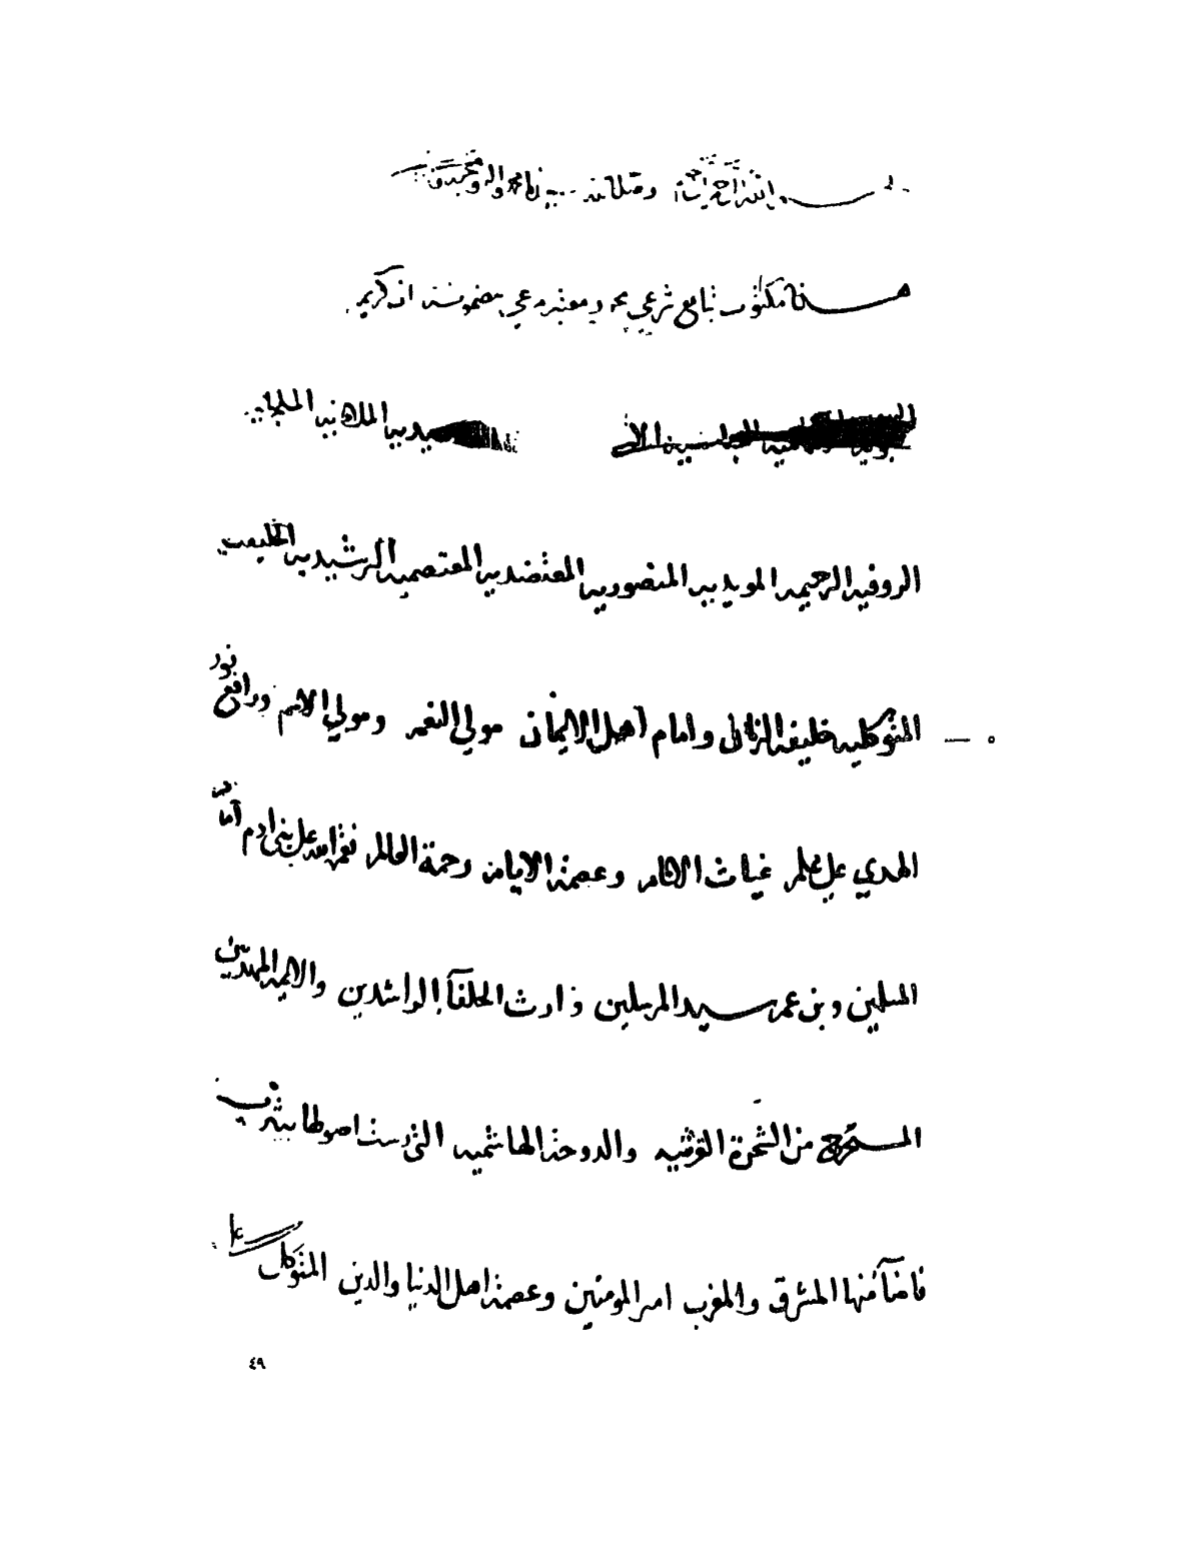 بسم الله الرحمن الرحيم وصلى الله على سيدنا محمد واله وصحبه
هذا مكتوب تبايع شرعي محرر معتبر مرعي مضمونه ان كريم
الملكانيه
الروفيه الرحيميه المويديه المنصوريه المعتضديه المعتصميه الرشيديه الخليفيه
المتوكليه خليفة الزمان وامام اهل الايمان مولي النعم ومولي الامم ورافع نور
الهدي على علم غياث الانام وعصمة الايام ورحمة العالم نعمة الله على بني ادم امام
المسلمين وبن عم سيد المرسلين وارث الخلفآ الراشدين والايمه المهديين
المستخرج من الشجرة القرشيه والدوحة الهاشميه التي رست اصولها بيثرب
فاضآ منها المشرق والمغرب امير المومنين وعصمة اهل الدنيا والدين المتوكل على
٤٩